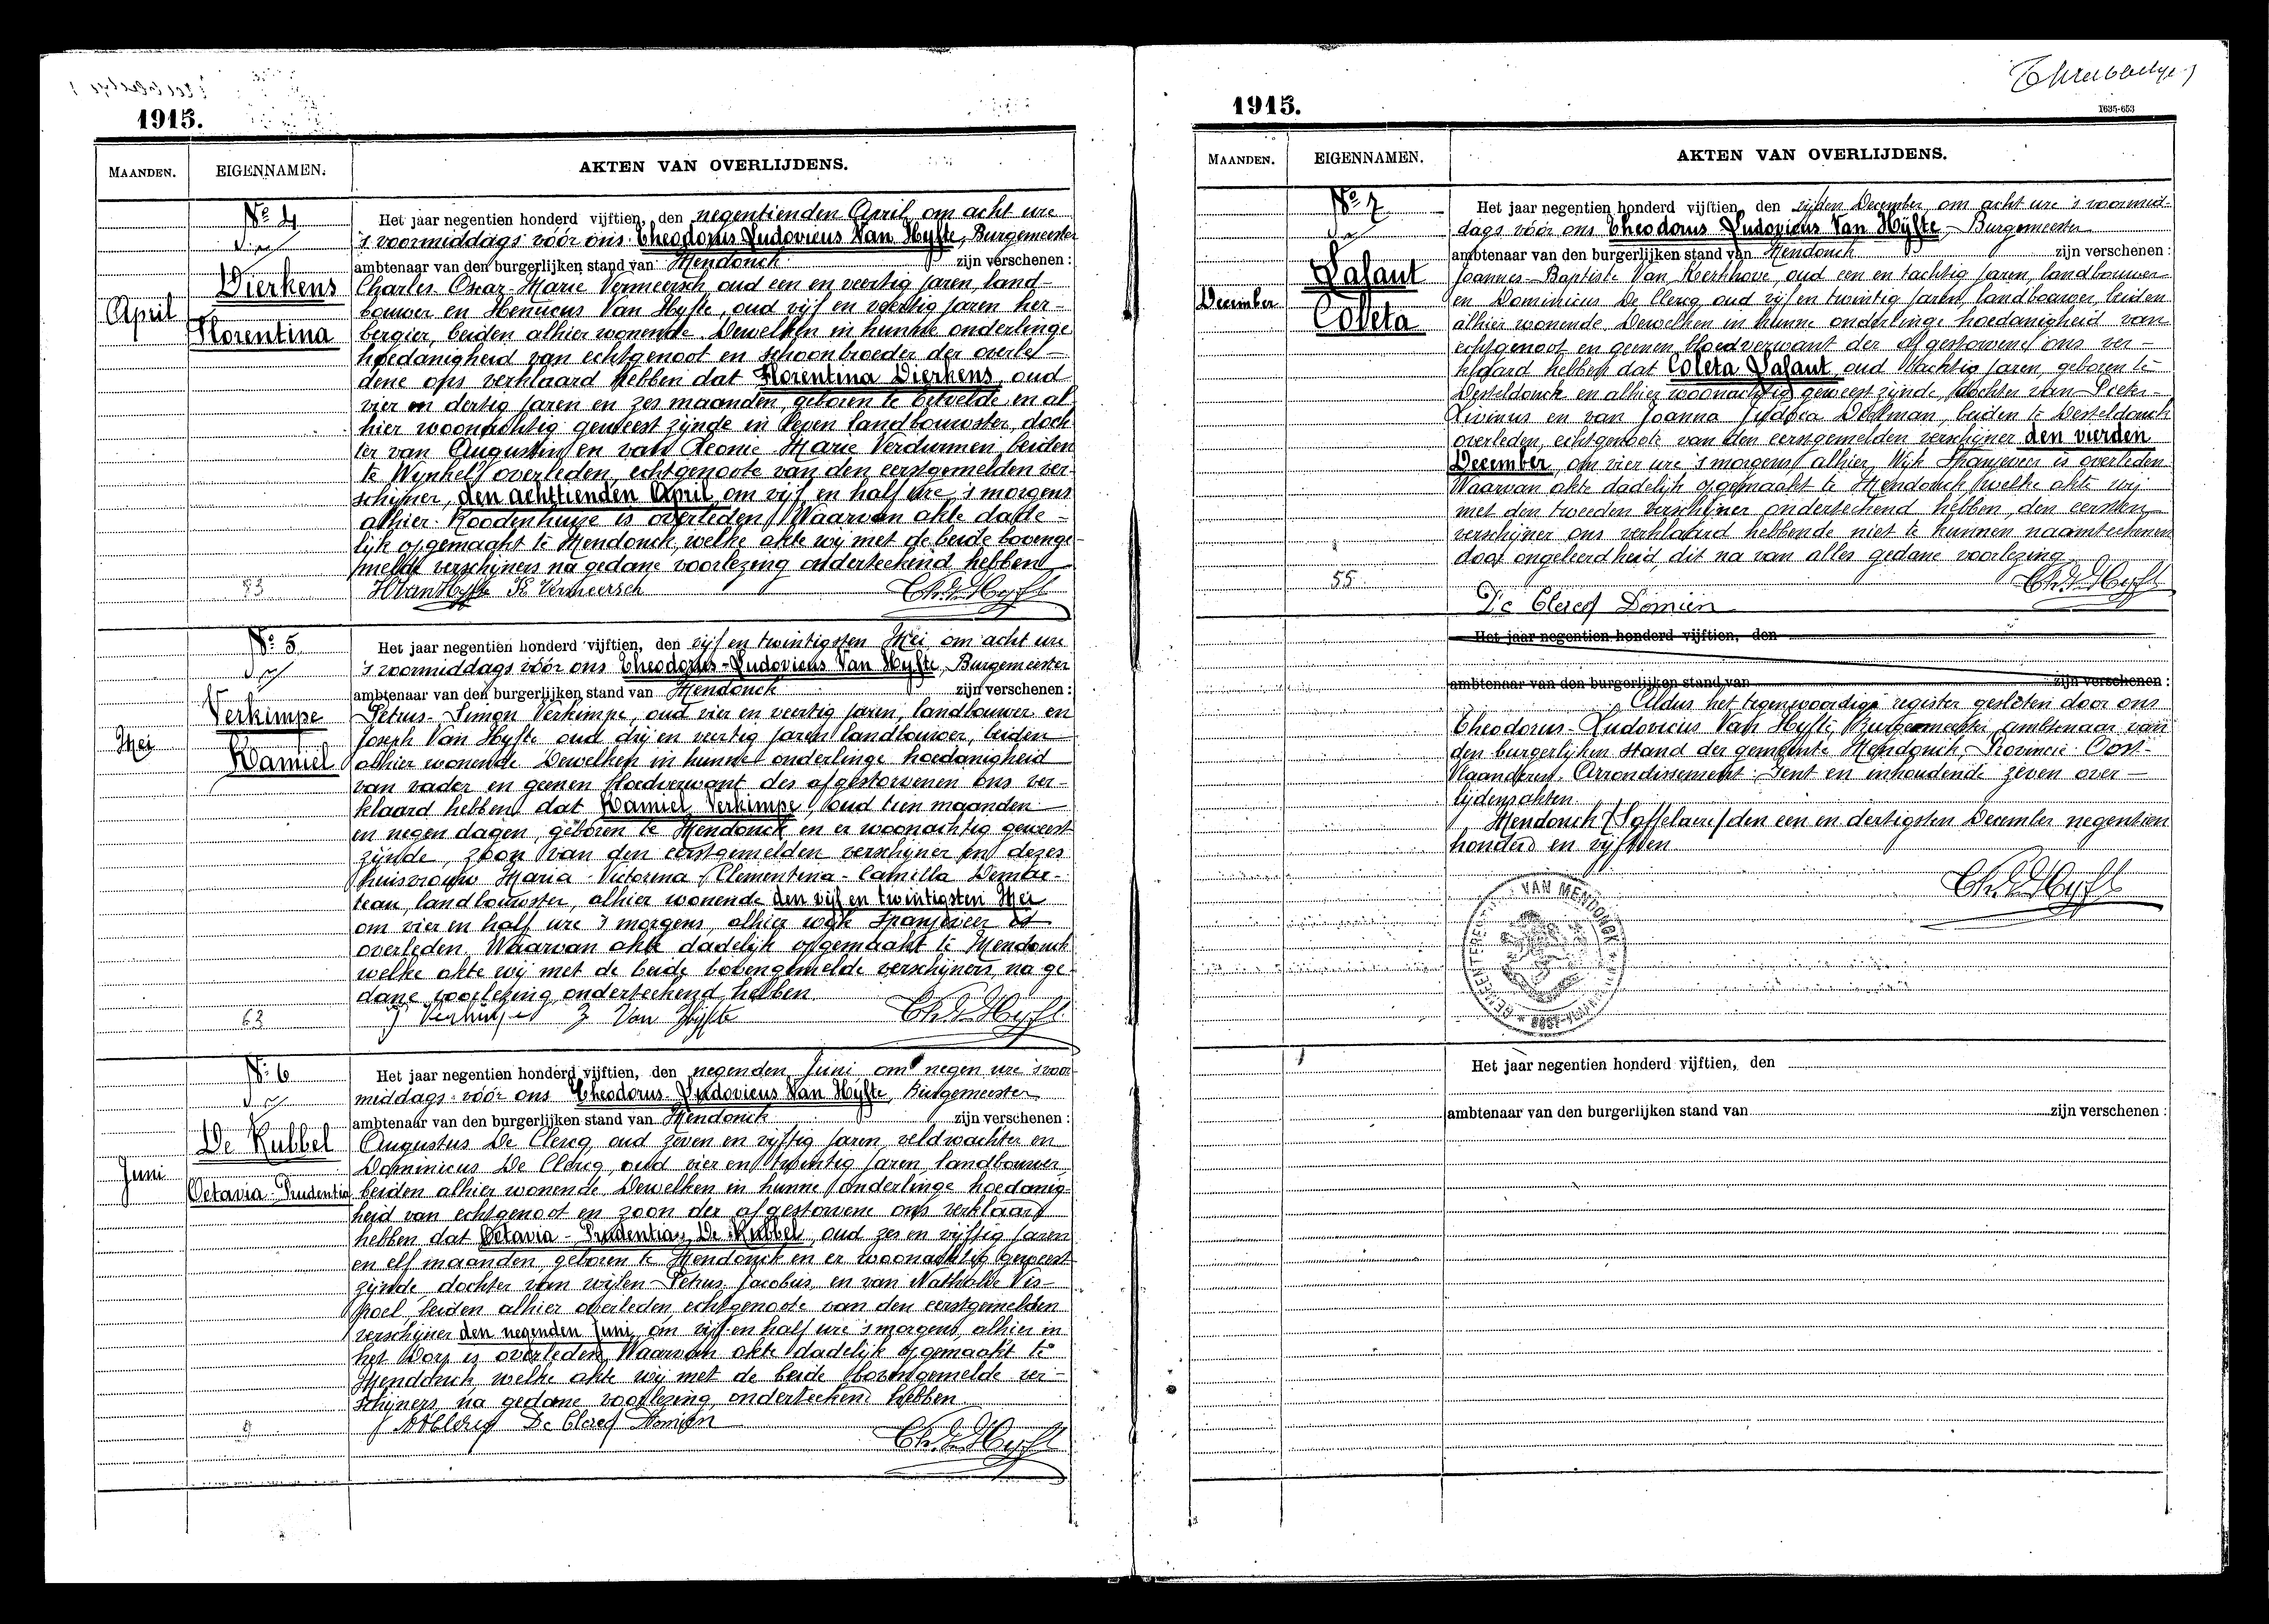 1915.
MAANDEN.
EIGENNAMEN.
AKTEN VAN OVERLIJDENS.
April
No 4
Dierkens
Florentina
Het jaar negentien honderd vijftien, den negentienden April om acht ure
's voormiddags vóór ons Theodorus Ludovicus Van Hyfte, Burgemeester
ambtenaar van den burgerlijken stand van Mendonck zijn verschenen :
Charles Omar Marie Vermeersch oud een en veertig jaren, land-
bouwer en Henricus Van Hyfte, oud vijf en veertig jaren her-
bergier, beiden alhier wonende. Dewelken in hunne onderlinge
hoedanigheid van echtgenoot en schoonbroeder der overle-
dene ons verklaard hebben dat Florentina Dierkens, oud
vier en dertig jaren en zes maanden, geboren te Ertvelde en al
hier woonachtig geweest zijnde in leven landbouwster, doch
ter van Augustin en van Leonie Marie Verdunmen beiden
te Wynkel overleden, echtgenoote van den eerstgemelden ver
schijner, den achttienden April, om vijf en half ure 's morgens
alhier Roodenhuize is overleden. Waarvan akte dade-
lijk opgemaakt te Mendonck, welke akte wij met de beide bovenge-
melde verschijners na gedane voorlezing onderteekend hebben
H Van Hyfte K Vermeersch
83
Mei
No 5
Verkimpe
Kamiel
Het jaar negentien honderd vijftien, den vijf en twintigsten Mei om acht ure
's voormiddags vóór ons Theodorus-Ludovicus Van Hyfte, Burgemeester
ambtenaar van den burgerlijken stand van Mendonck zijn verschenen :
Petrus-Simon Verkimpe, oud vier en veertig jaren, landbouwer en
Joseph Van Hyfte oud drij en veertig jaren landbouwer, beiden
alhier wonende. Dewelken in hunne onderlinge hoedanigheid
van vader en geenen bloedverwant des afgestorvenen ons ver-
klaard hebben dat Kamiel Verkimpe, oud tien maanden
en negen dagen, geboren te Mendonck en er woonachtig geweest
zijnde, zoon van den eerstgemelden verschijner en dezes
huisvrouw Maria-Victorina-Clementina-Camilla
landbouwster, alhier wonende den vijf en twintigsten Mei
om vier en half ure 's morgens, alhier wijk Spanjeveer is
overleden. Waarvan akte dadelijk opgemaakt te Mendonck
welke akte wij met de beide bovengemelde verschijners, na ge-
dane voorlezing onderteekend hebben
J Van Hyfte
63
Juni
No 6
De Kubbel
Octavia-Prudentia
Het jaar negentien honderd vijftien, den negenden Juni om negen ure 's voor
middags vóór ons Theodorus Ludovicus Van Hyfte, Burgemeester
ambtenaar van den burgerlijken stand van Mendonck zijn verschenen :
Augustus De Clercq, oud zeven en vijftig jaren, veldwachter en
Dominicus De Clercq, oud vier en twintig jaren, landbouwer
beiden alhier wonende. Dewelken in hunne onderlinge hoedanig-
heid van echtgenoot en zoon der afgestorvene ons verklaard
hebben dat Octavia-Prudentia De Kubbel, oud zes en vijftig jaren
en elf maanden, geboren te Mendonck en er woonachtig geweest
zijnde, dochter van wijlen Petrus Jacobus, en van Mathilde Ves-
poel, beiden alhier overleden, echtgenoote van den eerstgemelden
verschijner den negenden Juni, om vijf en half ure 's morgens, alhier in
het Dorp is overleden. Waarvan akte dadelijk opgemaakt te
Mendonck welke akte wij met de beide bovengemelde ver-
schijners, na gedane voorlezing, onderteekend hebben.
De Clercq Domien
1915.
1635-653
MAANDEN.
EIGENNAMEN.
AKTEN VAN OVERLIJDENS.
December
No 7
Lasaut
Coleta
Het jaar negentien honderd vijftien, den vijfden December, om acht ure 's voormid-
dags vóór ons Theodorus Ludovicus Van Hyfte, Burgemeester
ambtenaar van den burgerlijken stand van Mendonck zijn verschenen :
Joannes-Baptiste Van Kerkhove, oud een en tachtig jaren, landbouwer
en Dominicus De Clercq, oud vijf en twintig jaren, landbouwer, beiden
alhier wonende. Dewelken in hunne onderlinge hoedanigheid van
echtgenoot en geenen bloedverwant der afgestorvene ons ver-
klaard hebben dat Coleta Lasaut, oud tachtig jaren, geboren te
Desteldonck en alhier woonachtig geweest zijnde, dochter van Pieter-
Livinus en van Joanna Judoca beiden te Desteldonck
overleden, echtgenoote van den eerstgemelden verschijner den vierden
December, om vier ure 's morgens alhier, Wijk Spanjeveer is overleden
Waarvan akte dadelijk opgemaakt te Mendonck, welke akte wij
met den tweeden verschijner onderteekend hebben, den eersten
verschijner ons verklaard hebbende niet te kunnen naamteekenen
door ongeleerdheid, dit na van alles gedane voorlezing.
De Clercq Domien
55
Het jaar negentien honderd vijftien, den
ambtenaar van den burgerlijken stand van zijn verschenen :
Aldus het tegenwoordige register gesloten door ons
Theodorus-Ludovicus Van Hyfte, Burgemeester, ambtenaar van
den burgerlijken stand der gemeente Mendonck, Provincie Oost-
Vlaanderen. Arrondissement Gent en inhoudende zeven over-
lijdensakten.
Mendonck (Saffelaere) den een en dertigsten December negentien
honderd en vijftien
GEMEENTEBESTUUR VAN MENDONCK
Het jaar negentien honderd vijftien, den
ambtenaar van den burgerlijken stand van zijn verschenen :